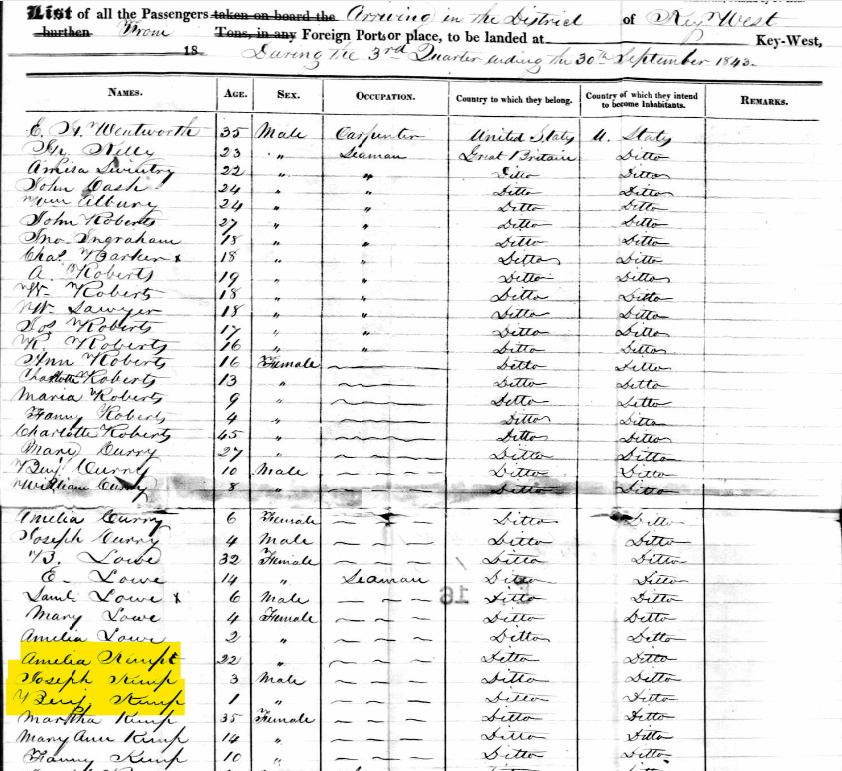 List of all the Passengers taken on board the Arriving in the District of Key West
burthen From Tons, in any Foreign Ports or place, to be landed at Key-West,
18 During the 3rd Quarter ending the 30th September 1843.
NAMES. AGE. SEX. OCCUPATION. Country to which they belong. Country of which they intend to become Inhabitants. REMARKS.
Wentworth 35 Male Carpenter United States U. States
23 " Seaman Great Britain Ditto
22 " " Ditto Ditto
John Cash 24 " " Ditto Ditto
Wm Albury 24 " " Ditto Ditto
John Roberts 27 " " Ditto Ditto
Jno. Ingraham 18 " " Ditto Ditto
Chas. Barker x 18 " " Ditto Ditto
A. Roberts 19 " " Ditto Ditto
W. Roberts 18 " " Ditto Ditto
W. Sawyer 18 " " Ditto Ditto
Jos Roberts 17 " " Ditto Ditto
R. Roberts 16 " " Ditto Ditto
Ann Roberts 16 Female Ditto Ditto
Charlotte Roberts 13 " Ditto Ditto
Maria Roberts 9 " Ditto Ditto
Fanny Roberts 4 " Ditto Ditto
Charlotte Roberts 45 " Ditto Ditto
Mary Curry 27 " Ditto Ditto
Benj. Curry 10 Male Ditto Ditto
William Curry 8 " Ditto Ditto
Amelia Curry 6 Female Ditto Ditto
Joseph Curry 4 Male Ditto Ditto
B. Lowe 32 Female Ditto Ditto
E. Lowe 14 " Seaman Ditto Ditto
Saml Lowe x 6 Male Ditto Ditto
16
Mary Lowe 4 Female Ditto Ditto
Amelia Lowe 2 " Ditto Ditto
Amelia Kempt 22 " Ditto Ditto
Joseph Kemp 3 Male Ditto Ditto
Benj Kemp 1 " Ditto Ditto
Martha Kemp 35 Female Ditto Ditto
Mary Ann Kemp 14 " Ditto Ditto
Fanny Kemp 10 " Ditto Ditto